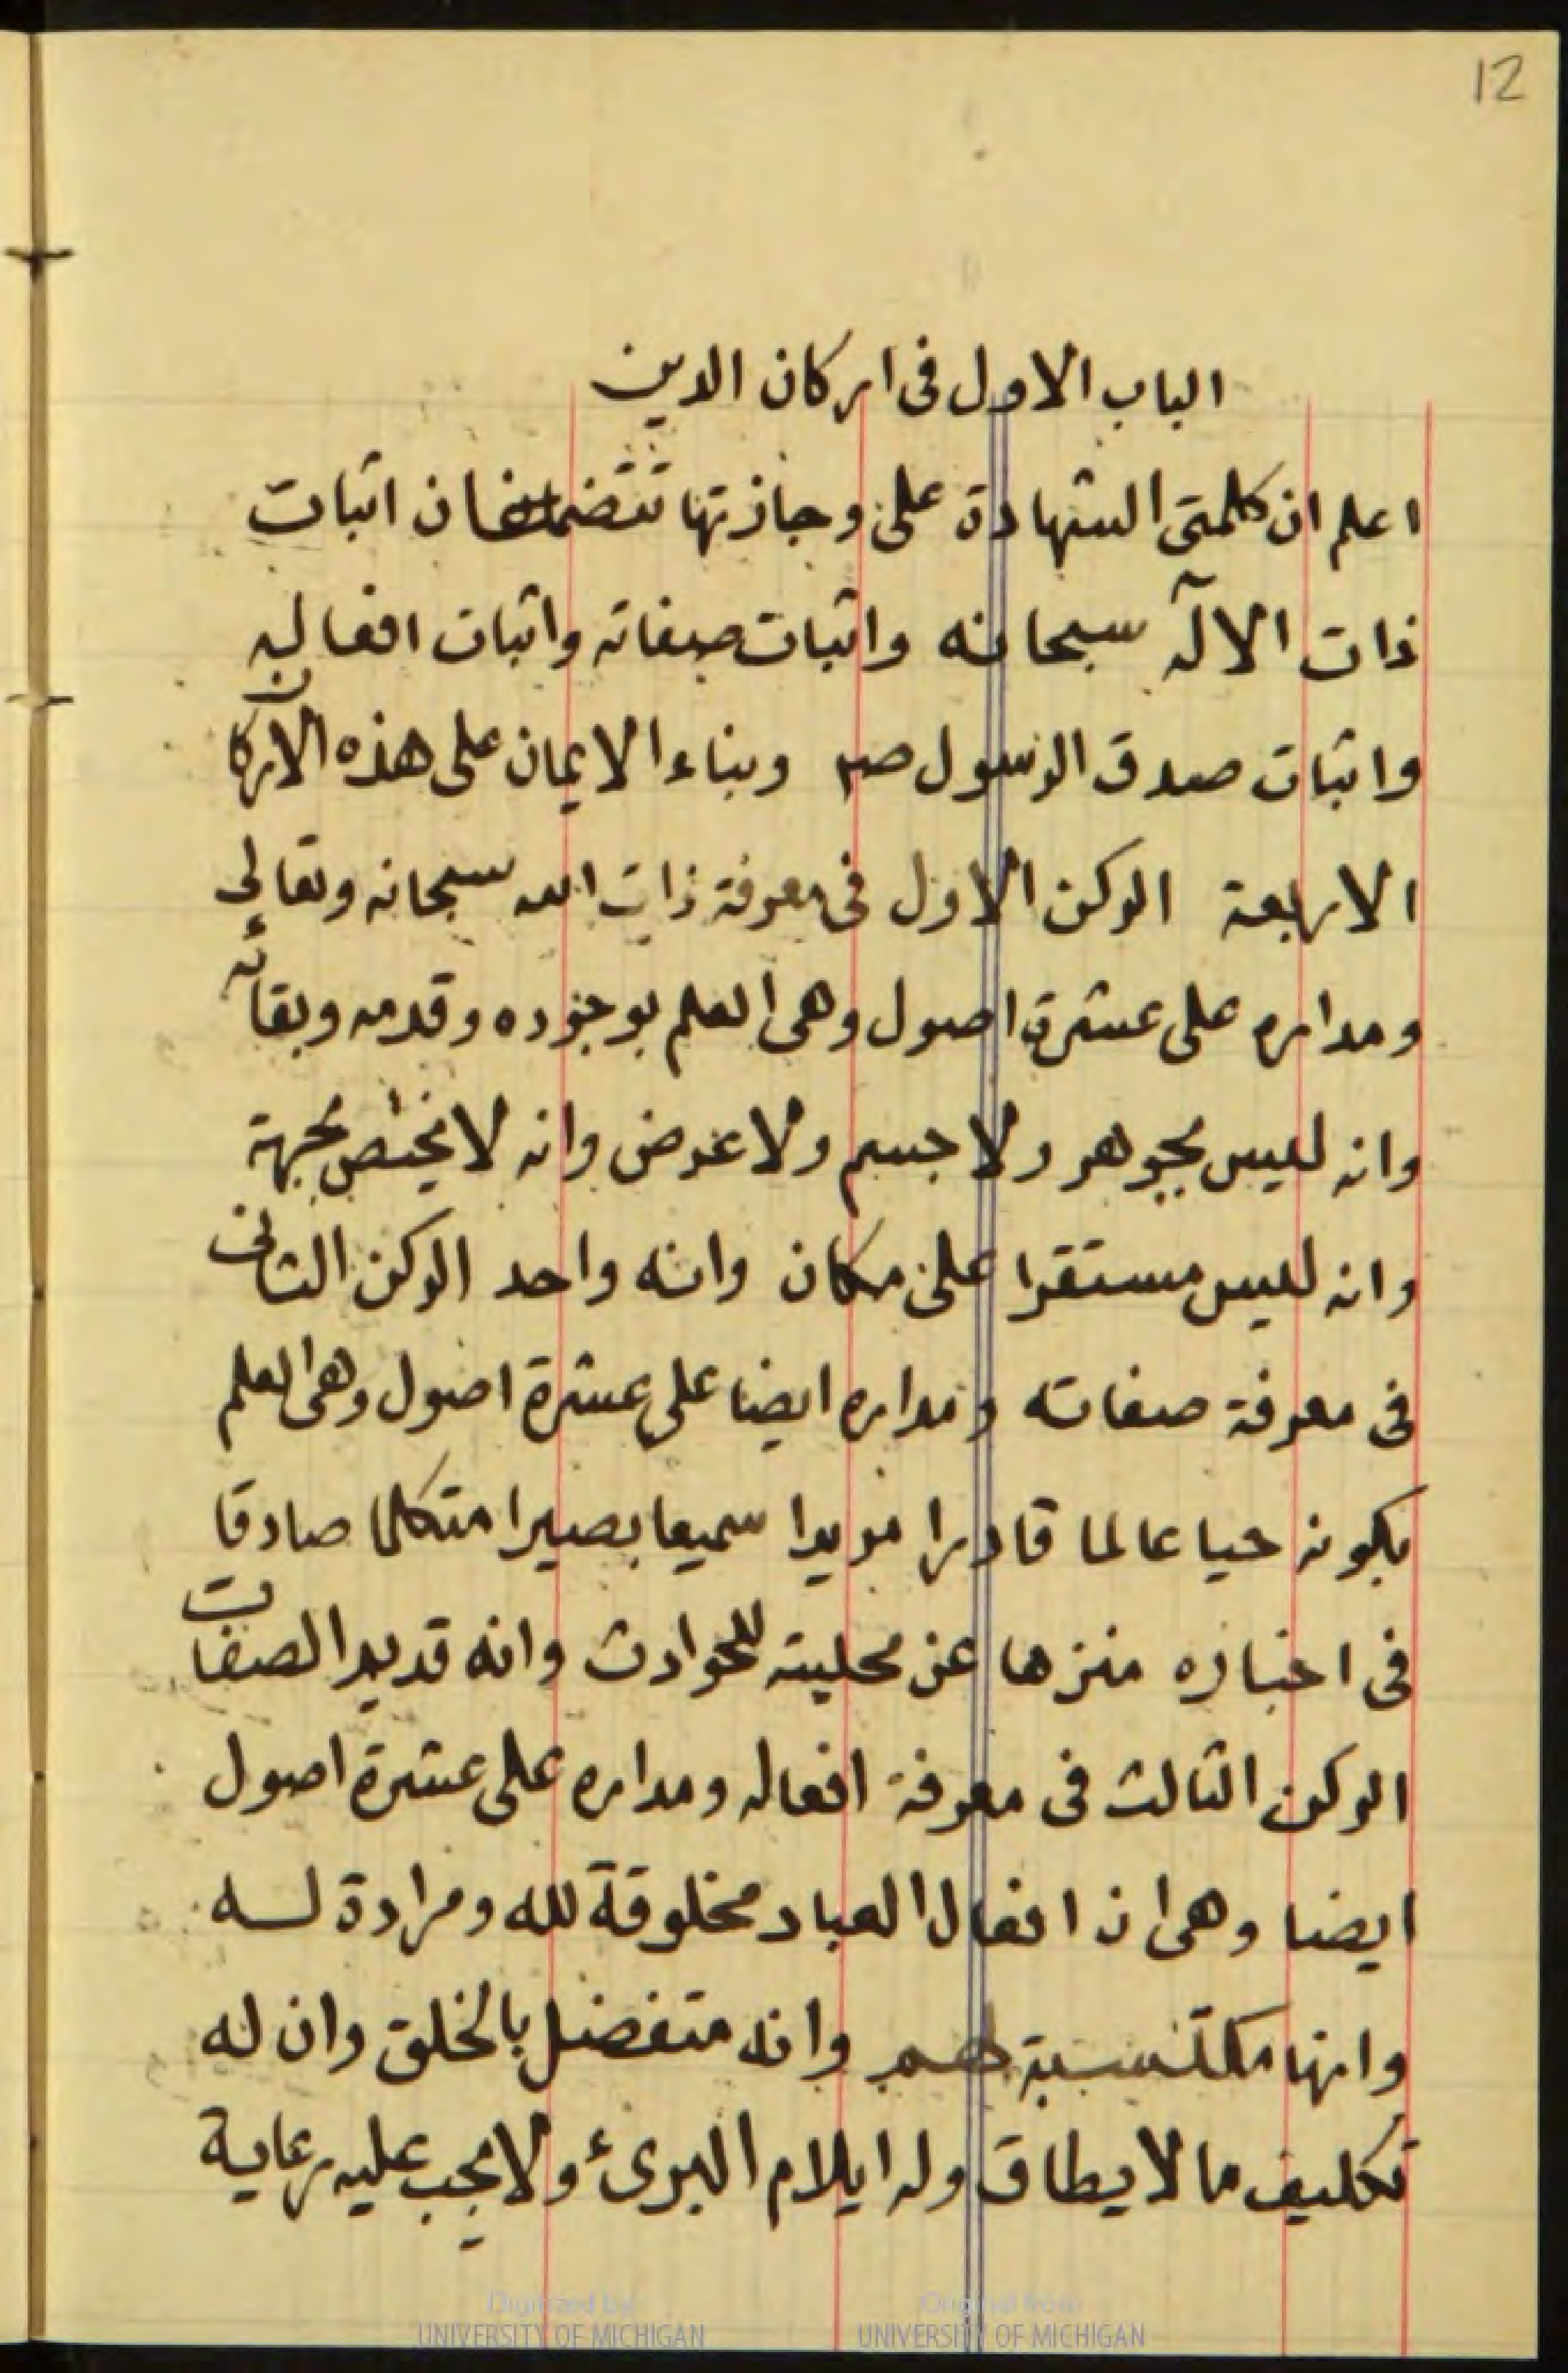 12
الباب الاول فى اركان الدين
اعلم ان كلمتى الشهادة على وجازتها تتضمنان اثبات
ذات الاله سبحانه واثبات صفاته واثبات افعاله
واثبات صدق الرسول صم وبناء الايمان على هذه الاركان
الاربعة الركن الاول فى معرفة ذات الله سبحانه وتعالى
ومداره على عشرة اصول وهى العلم بوجوده وقدمه وبقائه
وانه ليس بجوهر ولا جسم ولا عرض وانه لا يختص بجهة
وانه ليس مستقرا على مكان وانه واحد الركن الثانى
فى معرفة صفاته ومداره ايضا على عشرة اصول وهى العلم
بكونه حيا عالما قادرا مريدا سميعا بصيرا متكلما صادقا
فى اخباره منزها عن محلية للحوادث وانه قديم الصفات
الركن الثالث فى معرفة افعاله ومداره على عشرة اصول
ايضا وهى ان افعال العباد مخلوقة لله ومرادة له
وانها مكتسبة لهم وانه متفضل بالخلق وان له
تكليف ما لا يطاق وله ايلام البرىء ولا يجب عليه رعاية
Digitized by UNIVERSITY OF MICHIGAN
Original from UNIVERSITY OF MICHIGAN